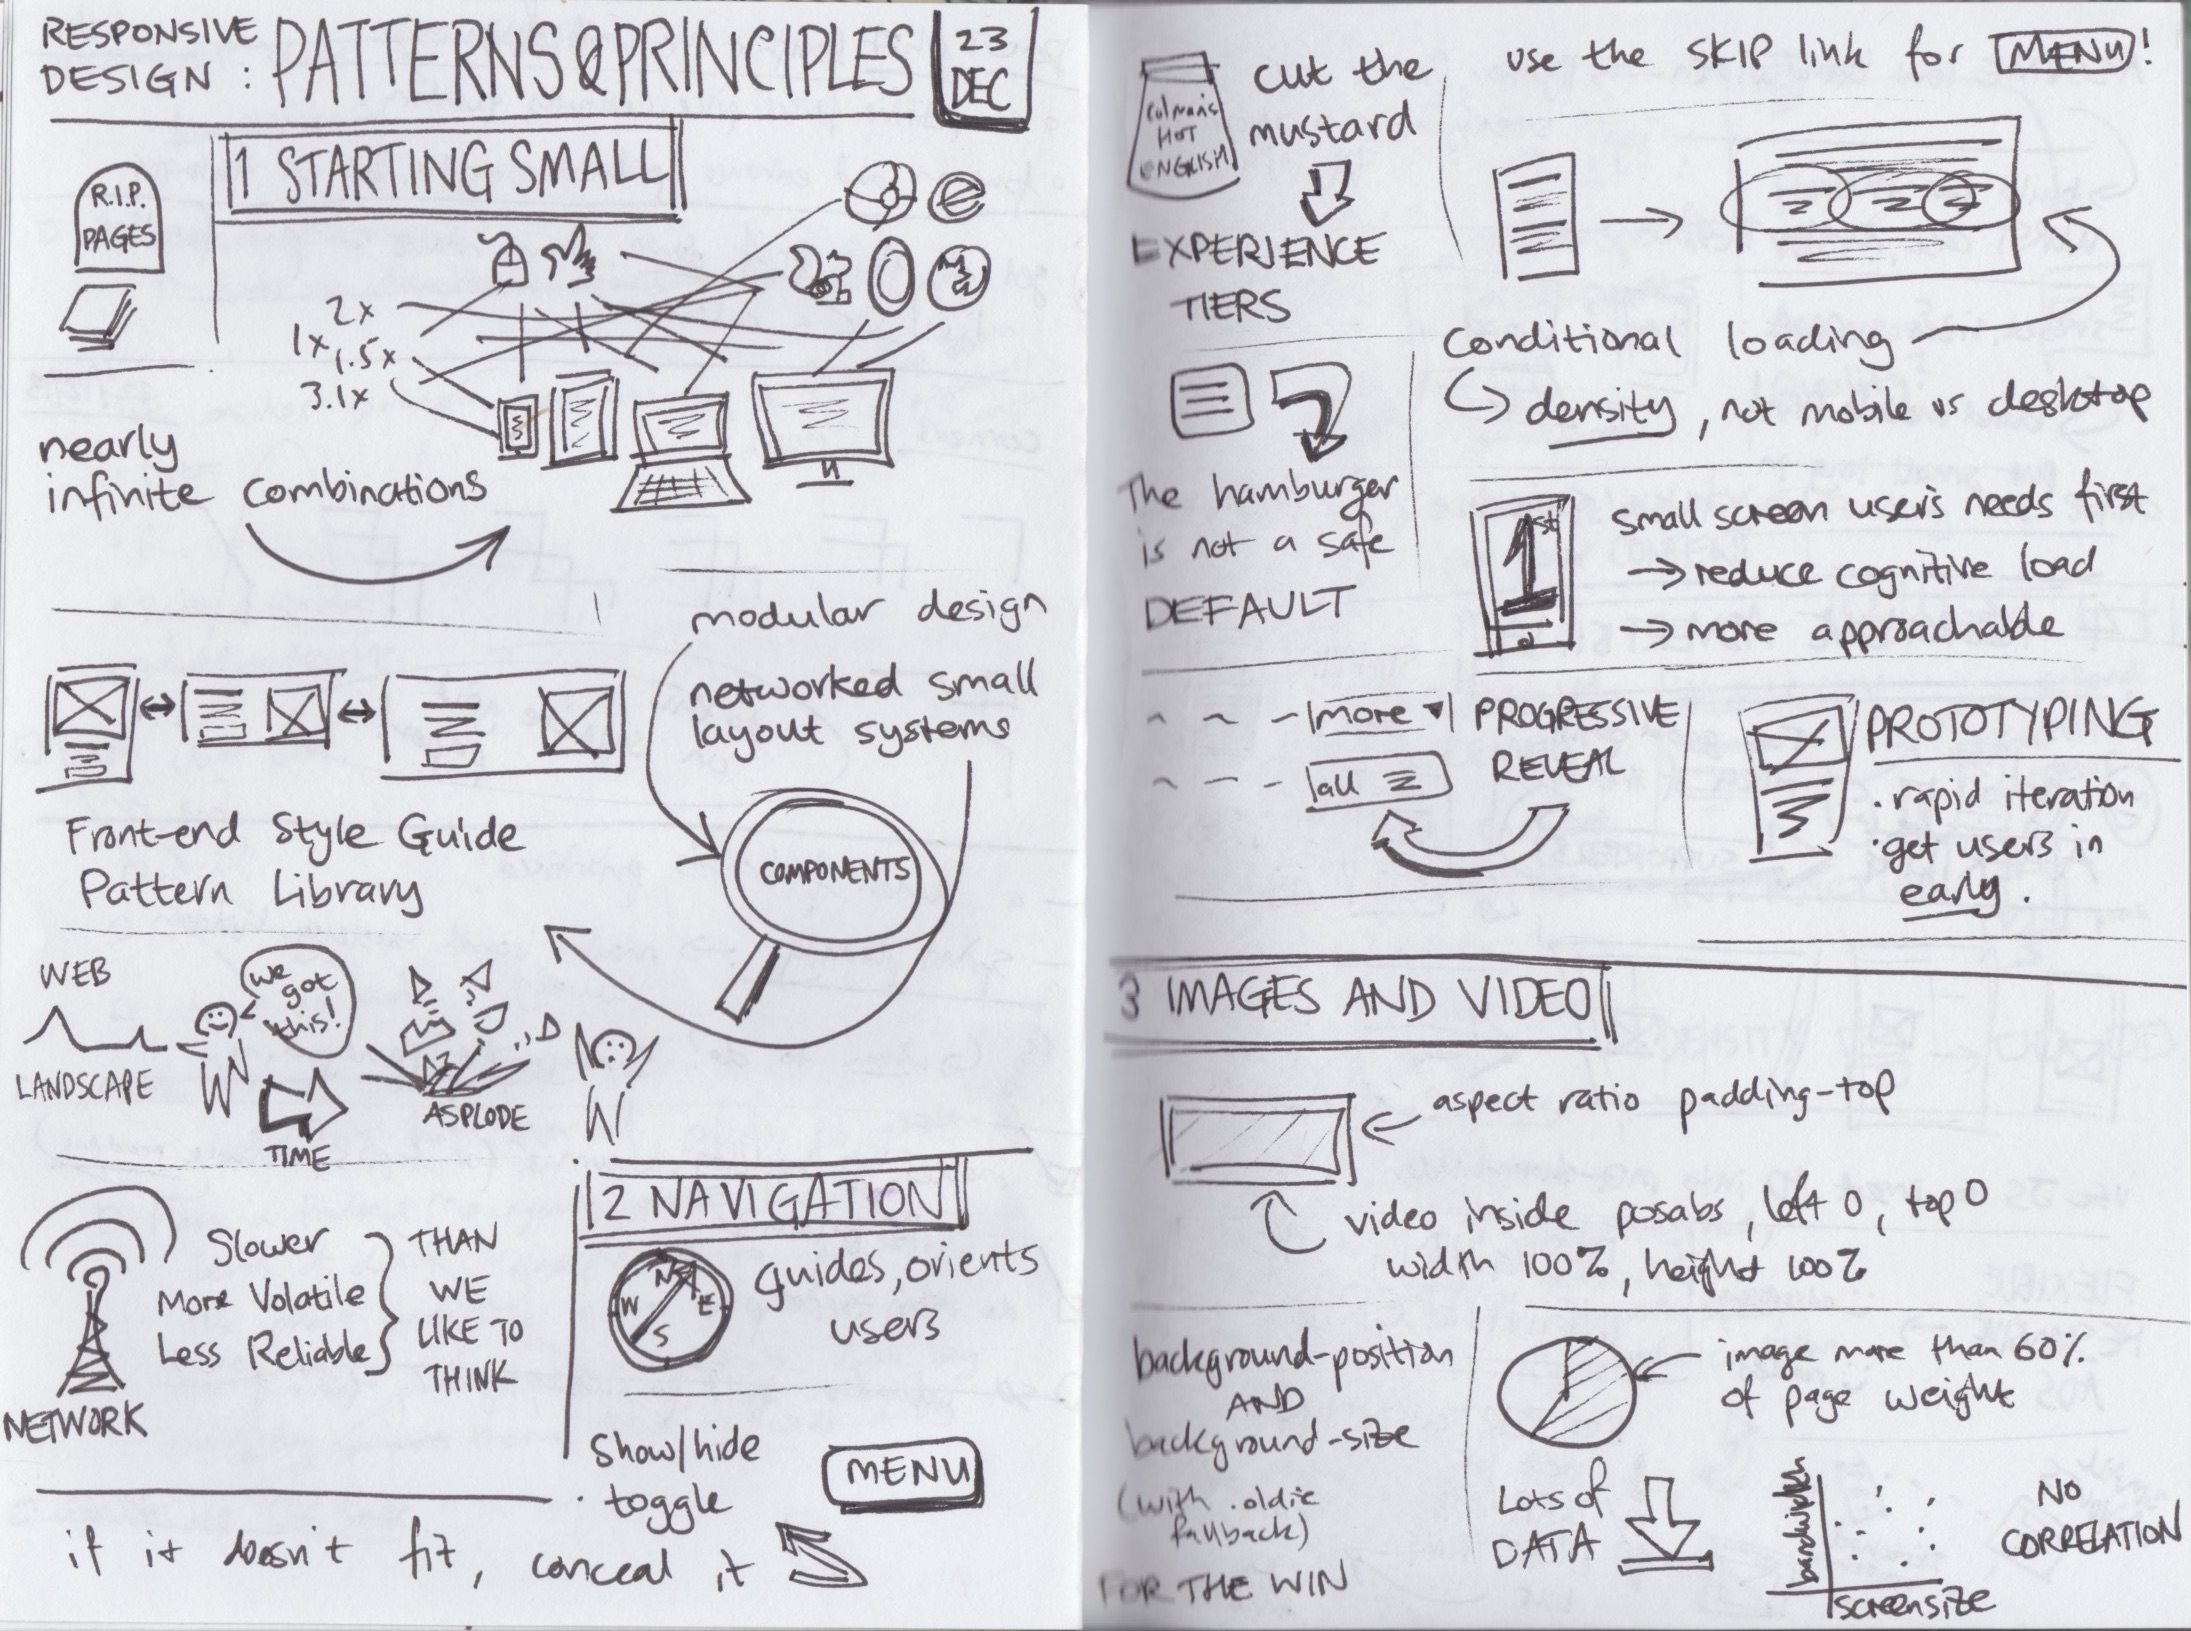 RESPONSIVE
DESIGN : PATTERNS & PRINCIPLES
23
DEC
R.I.P.
PAGES
1 STARTING SMALL
2x
1x
1.5x
3.1x
nearly
infinite combinations
modular design
networked small
layout systems
COMPONENTS
Front-end Style Guide
Pattern Library
WEB
LANDSCAPE
we
got
this!
TIME
ASPLODE
NETWORK
Slower
More Volatile
Less Reliable
THAN
WE
LIKE TO
THINK
2 NAVIGATION
N
E
S
W
guides, orients
users
Show/hide
toggle
MENU
if it doesn't fit, conceal it
Colman's
HOT
ENGLISH
cut the
mustard
EXPERIENCE
TIERS
use the SKIP link for MENU!
conditional loading
density, not mobile vs desktop
The hamburger
is not a safe
DEFAULT
1st
small screen user's needs first
→ reduce cognitive load
→ more approachable
more ▼
all
PROGRESSIVE
REVEAL
PROTOTYPING
. rapid iteration
. get users in
early.
3 IMAGES AND VIDEO
aspect ratio padding-top
video inside posabs, left 0, top 0
width 100%, height 100%
background-position
AND
background-size
(with .oldie
fallback)
FOR THE WIN
image more than 60%
of page weight
LOTS OF
DATA
bandwidth
screensize
NO
CORRELATION